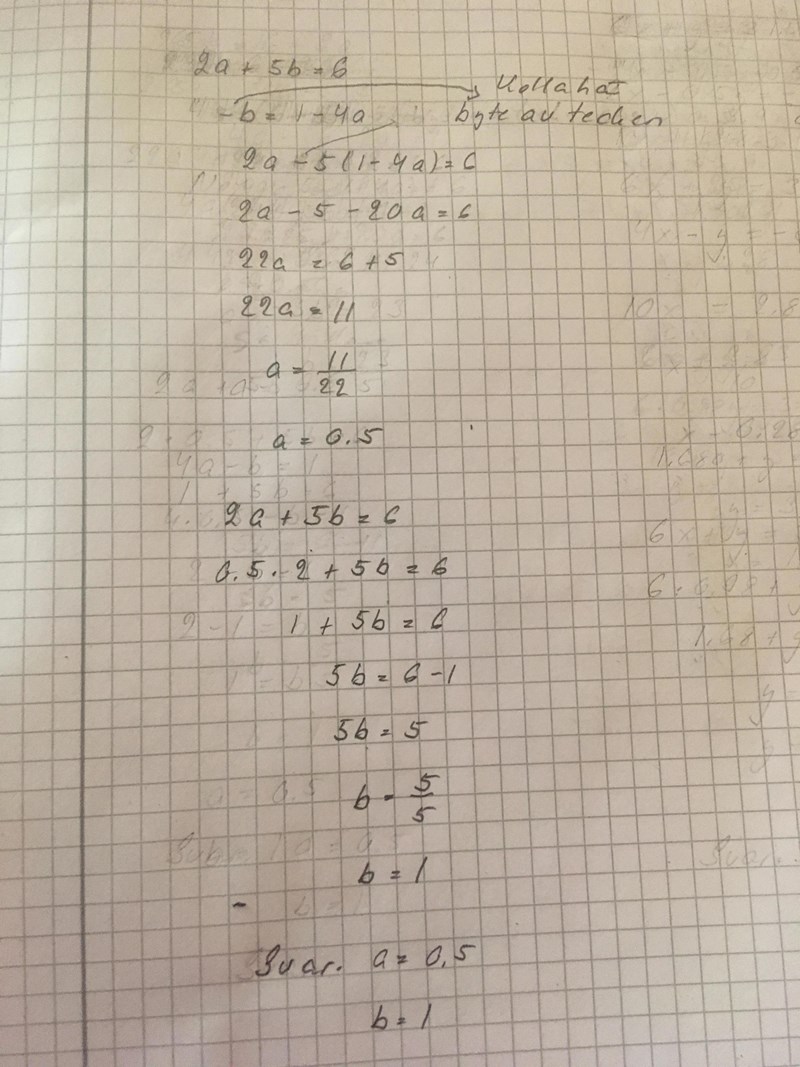 2a + 5b = 6
-b = 1 - 4a
Kolla hat
byte av tecken
2a - 5(1 - 4a) = 6
2a - 5 - 20a = 6
22a = 6 + 5
22a = 11
a = 11/22
a = 0.5
2a + 5b = 6
0.5 · 2 + 5b = 6
1 + 5b = 6
5b = 6 - 1
5b = 5
b = 5/5
b = 1
Svar. a = 0,5
b = 1